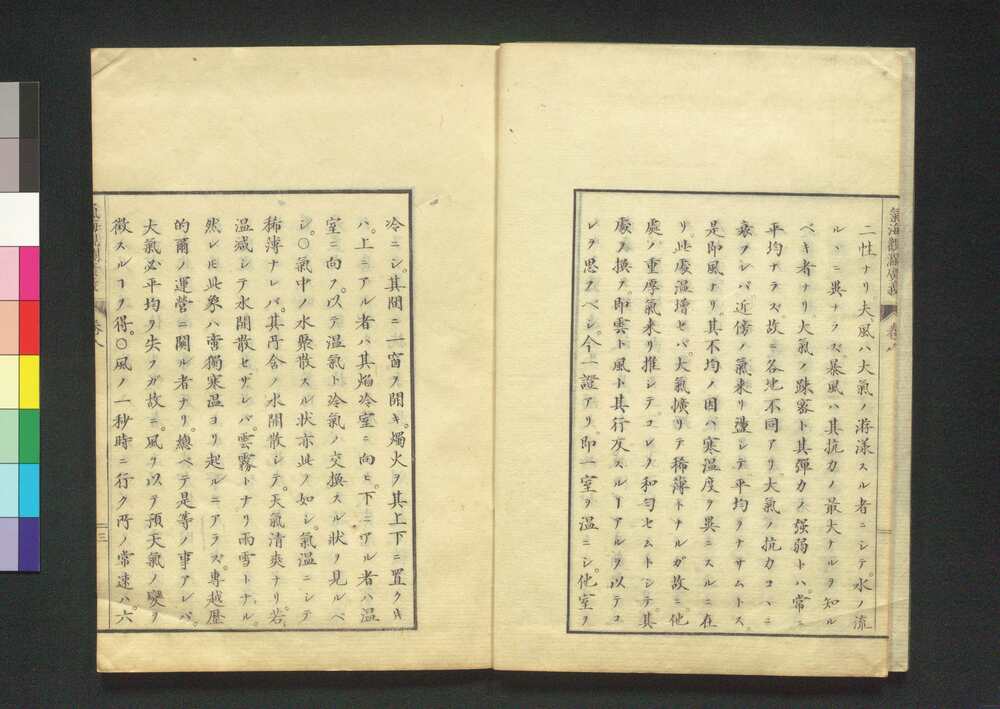 氣海觀瀾廣義 卷八
二性ナリ夫風ハ大氣ノ游漾スル者ニシテ。水ノ流
ルヽニ異ナラズ。暴風ハ其抗力ノ最大ナルヲ知ル
ベキ者ナリ大氣ノ疎密ト其彈力ノ强弱トハ。常ニ
平均ナラズ。故ニ各地不同アリ大氣ノ抗力コヽニ
衰フレバ近傍ノ氣來リ盪シテ平均ヲナサムトス。
是即風ナリ。其不均ノ因ハ寒溫度ヲ異ニスルニ在
リ。此處溫增セバ。大氣擴リテ稀薄トナルガ故ニ。他
處ノ重厚氣来リ推シテ。コレヲ和勻セムトシテ。其
處ヲ換フ。即雲ト風ト其行反スルヿアルヲ以テコ
レヲ思フベシ。今一證アリ。即一室ヲ溫ニシ。他室ヲ
冷ニシ。其間ニ一窗ヲ開キ。燭火ヲ其上下ニ置クキ
ハ。上ニアル者ハ其焰冷室ニ向ヒ。下ニアル者ハ溫
室ニ向フ。以テ溫氣ト冷氣ノ交換スル狀ヲ見ルベ
シ。〇氣中ノ水聚散スル狀亦此ノ如シ。氣溫ニシテ
稀薄ナレバ。其所含ノ水開散シテ。天氣清爽ナリ。若
溫減シテ水開散セザレバ。雲霧トナリ雨雪トナル。
然レ𪜈此象ハ啻獨寒溫ヨリ起ルニアラズ。專越歷
的爾ノ運營ニ關ル者ナリ。總ベテ是等ノ事アレバ。
大氣必平均ヲ失フガ故ニ。風ヲ以テ預天氣ノ變ヲ
徵スルヿヲ得。〇風ノ一秒時ニ行ク所ノ常速ハ。六
卷八
三